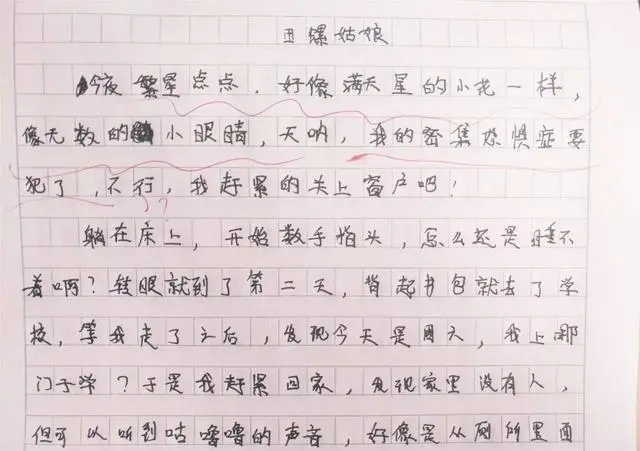 田螺姑娘
今夜繁星点点.好像满天星的小花一样,
像无数的小眼睛,天呐,我的密集恐惧症要
犯了,不行,我赶紧的关上窗户吧!
??
躺在床上,开始数手指头,怎么还是睡不
着啊?转眼就到了第二天,背起书包就去了学
校,等我走了之后,发现今天是周六,我上哪
门子学?于是我赶紧回家,发现家里没有人,
但可以听到咕噜噜的声音,好像是从厕所里面